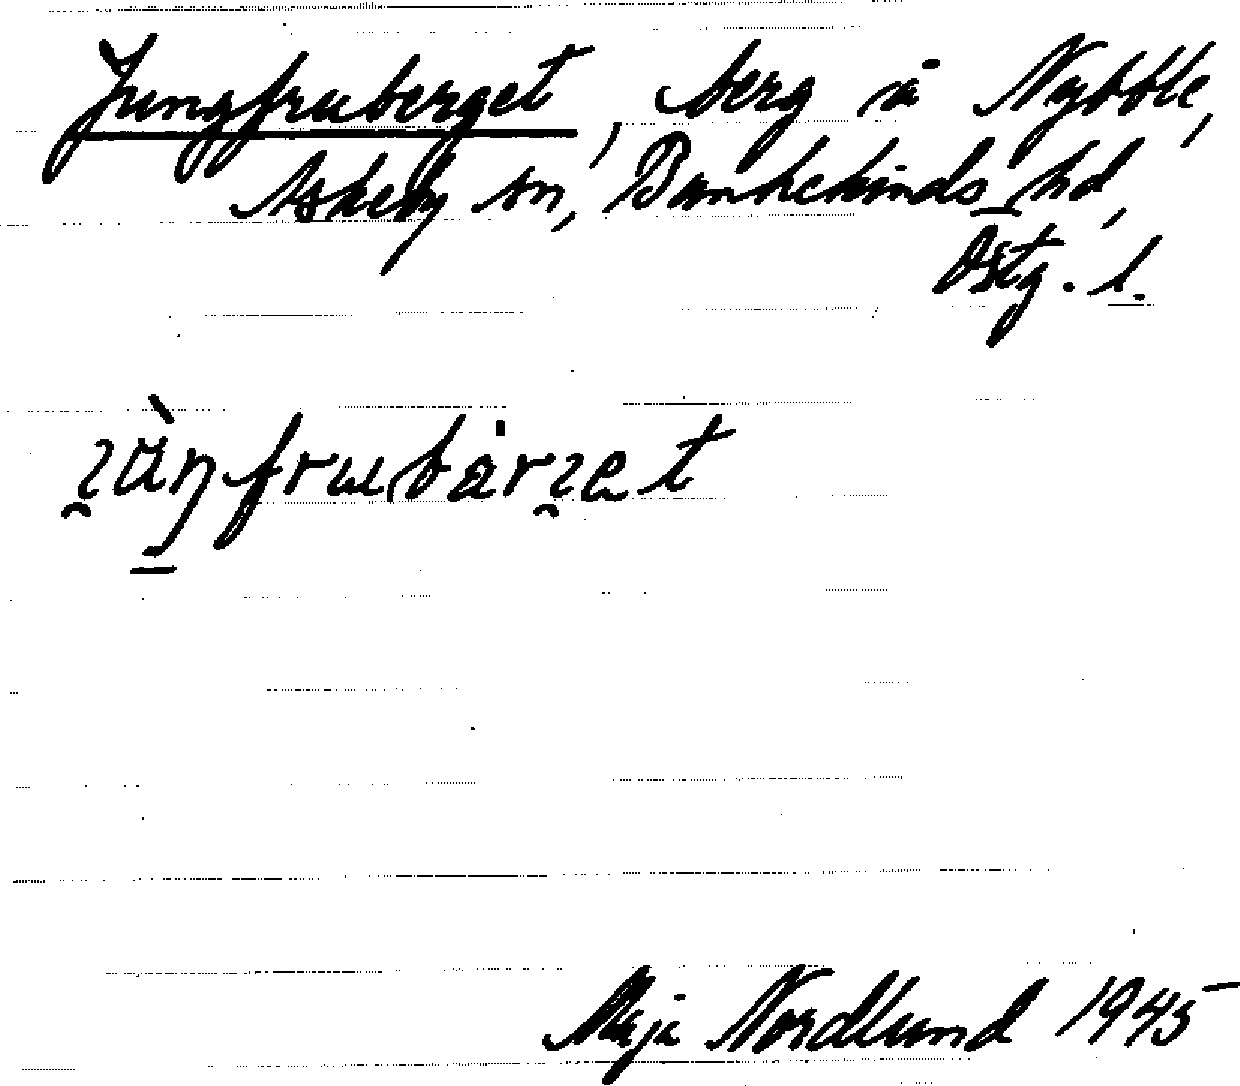 Jungfruberget, berg å Nybble,
Askeby sn, Bankekinds hd,
Östg. l.
Maja Nordlund 1945